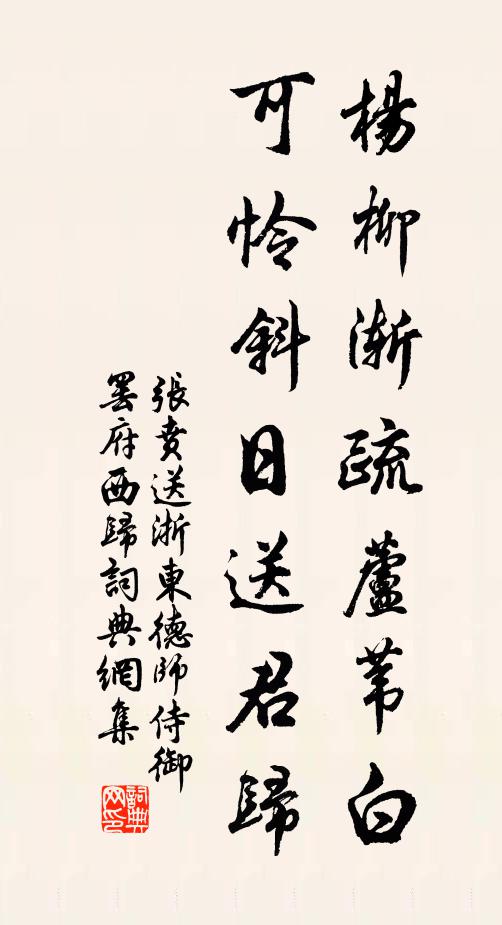 楊柳漸疏蘆葦白
可怜斜日送君歸
張賁送浙東德師侍御
罢府西歸詞典網集
詞典网印